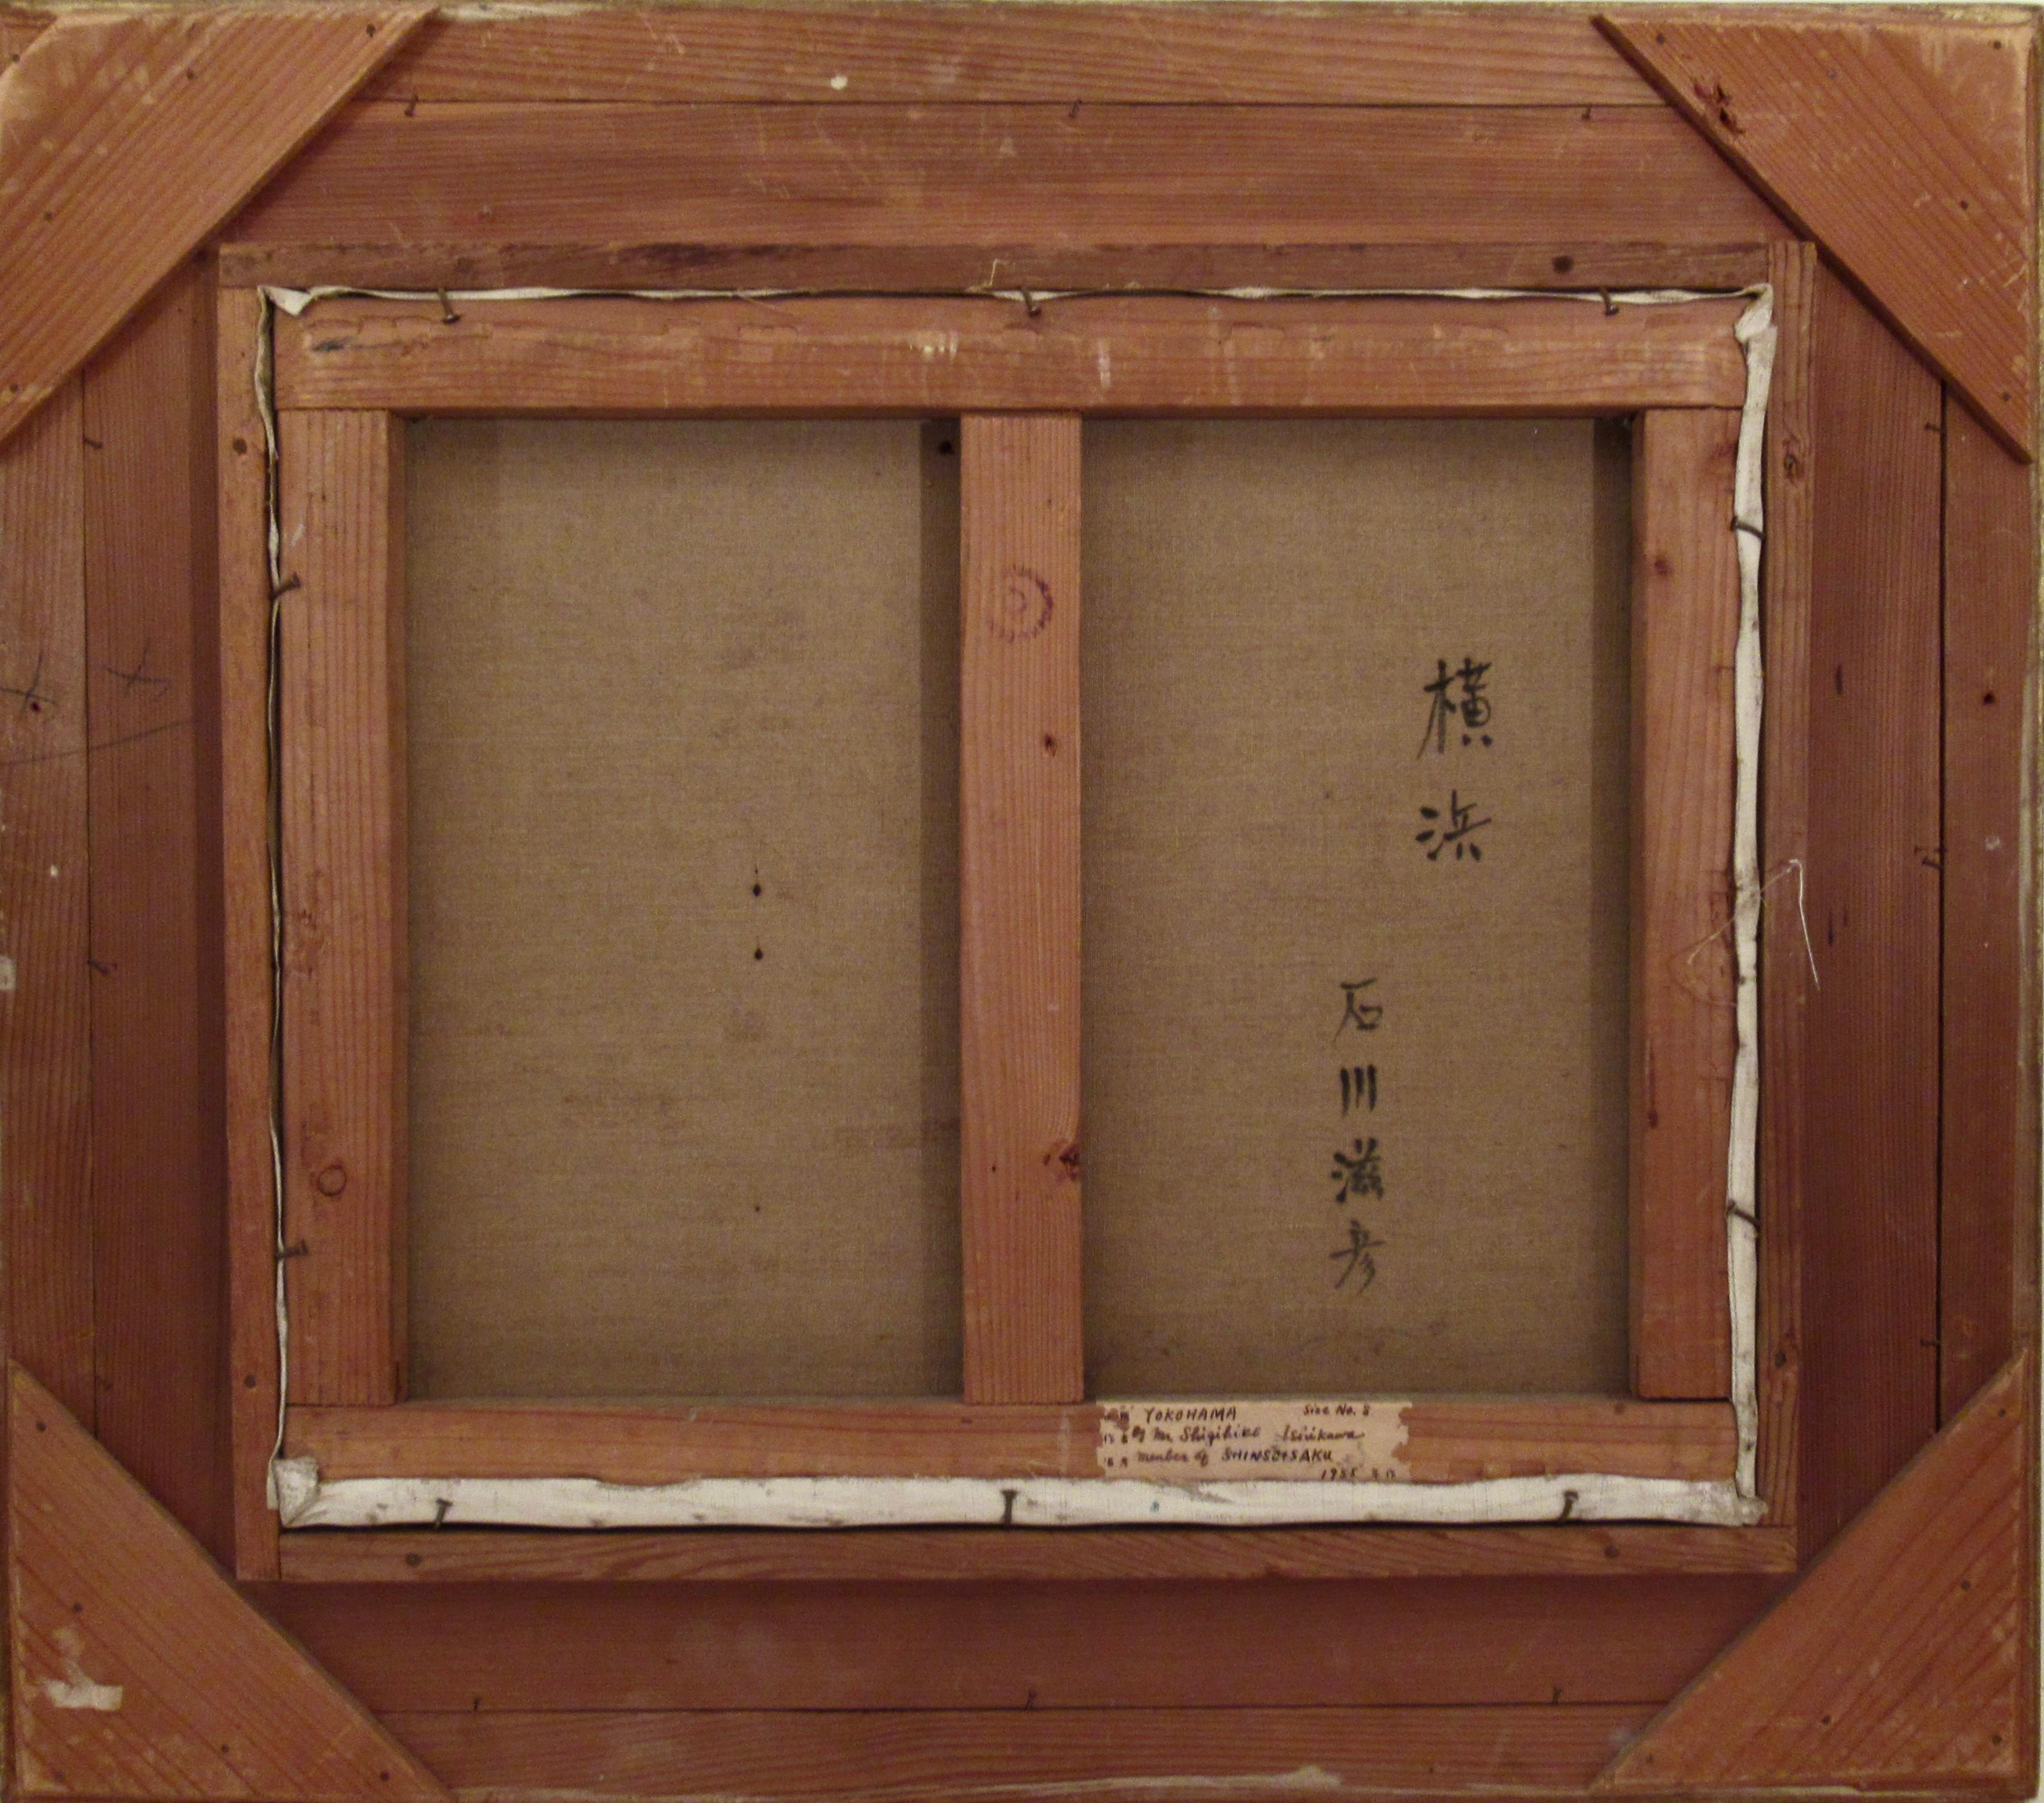 横浜
石川滋彦
YOKOHAMA Size No. 8
of Mr Shigihiko Isirikawa
member of SHINSEISAKU
1955